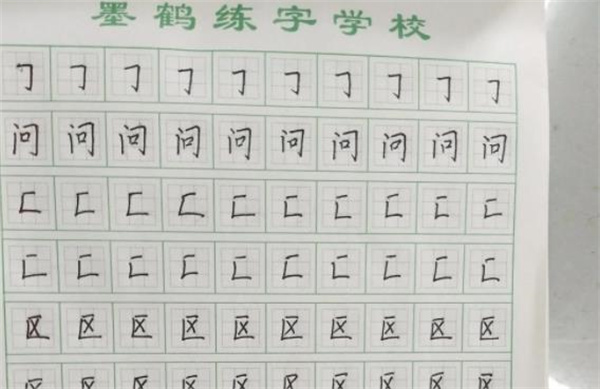 墨鹤练字学校
㇆ ㇆ ㇆ ㇆ ㇆ ㇆ ㇆ ㇆ ㇆ ㇆
问 问 问 问 问 问 问 问 问 问
匚 匚 匚 匚 匚 匚 匚 匚 匚 匚
匚 匚 匚 匚 匚 匚 匚 匚 匚 匚
区 区 区 区 区 区 区 区 区 区